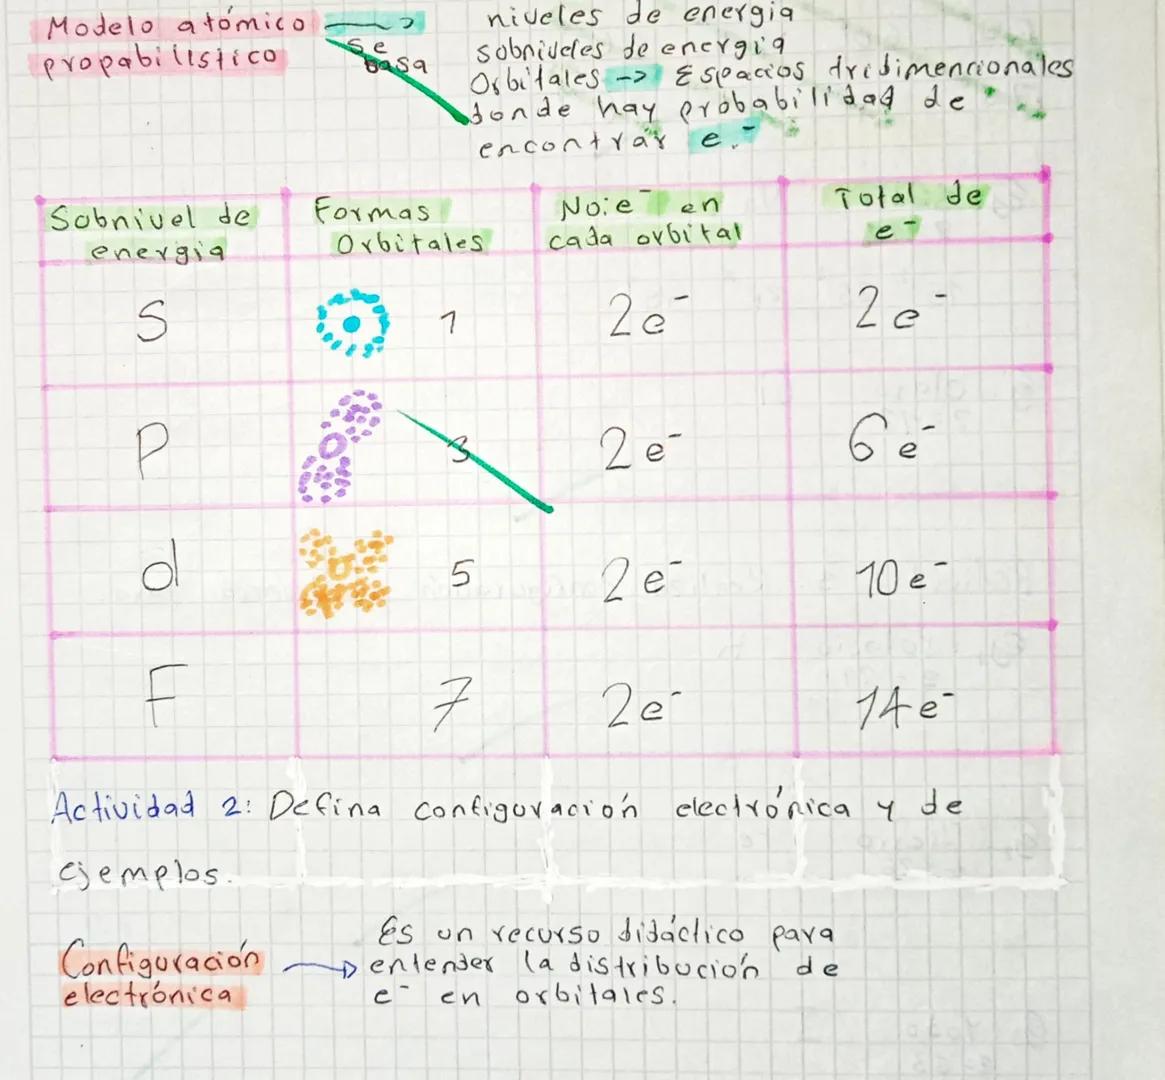 Modelo atómico → niveles de energia
propabilístico se basa sobniveles de energia
Orbitales -> Espacios tridimencionales
donde hay probabilidad de
encontrar e.-
Sobnivel de energia | Formas Orbitales | No: e- en cada orbital | Total de e-
S 1 2e- 2e-
P 3 2e- 6e-
d 5 2e- 10e-
F 7 2e- 14e-
Actividad 2: Defina configuración electrónica y de
ejemplos.
Configuración electrónica → Es un recurso didáctico para
entender la distribución de
e- en orbitales.